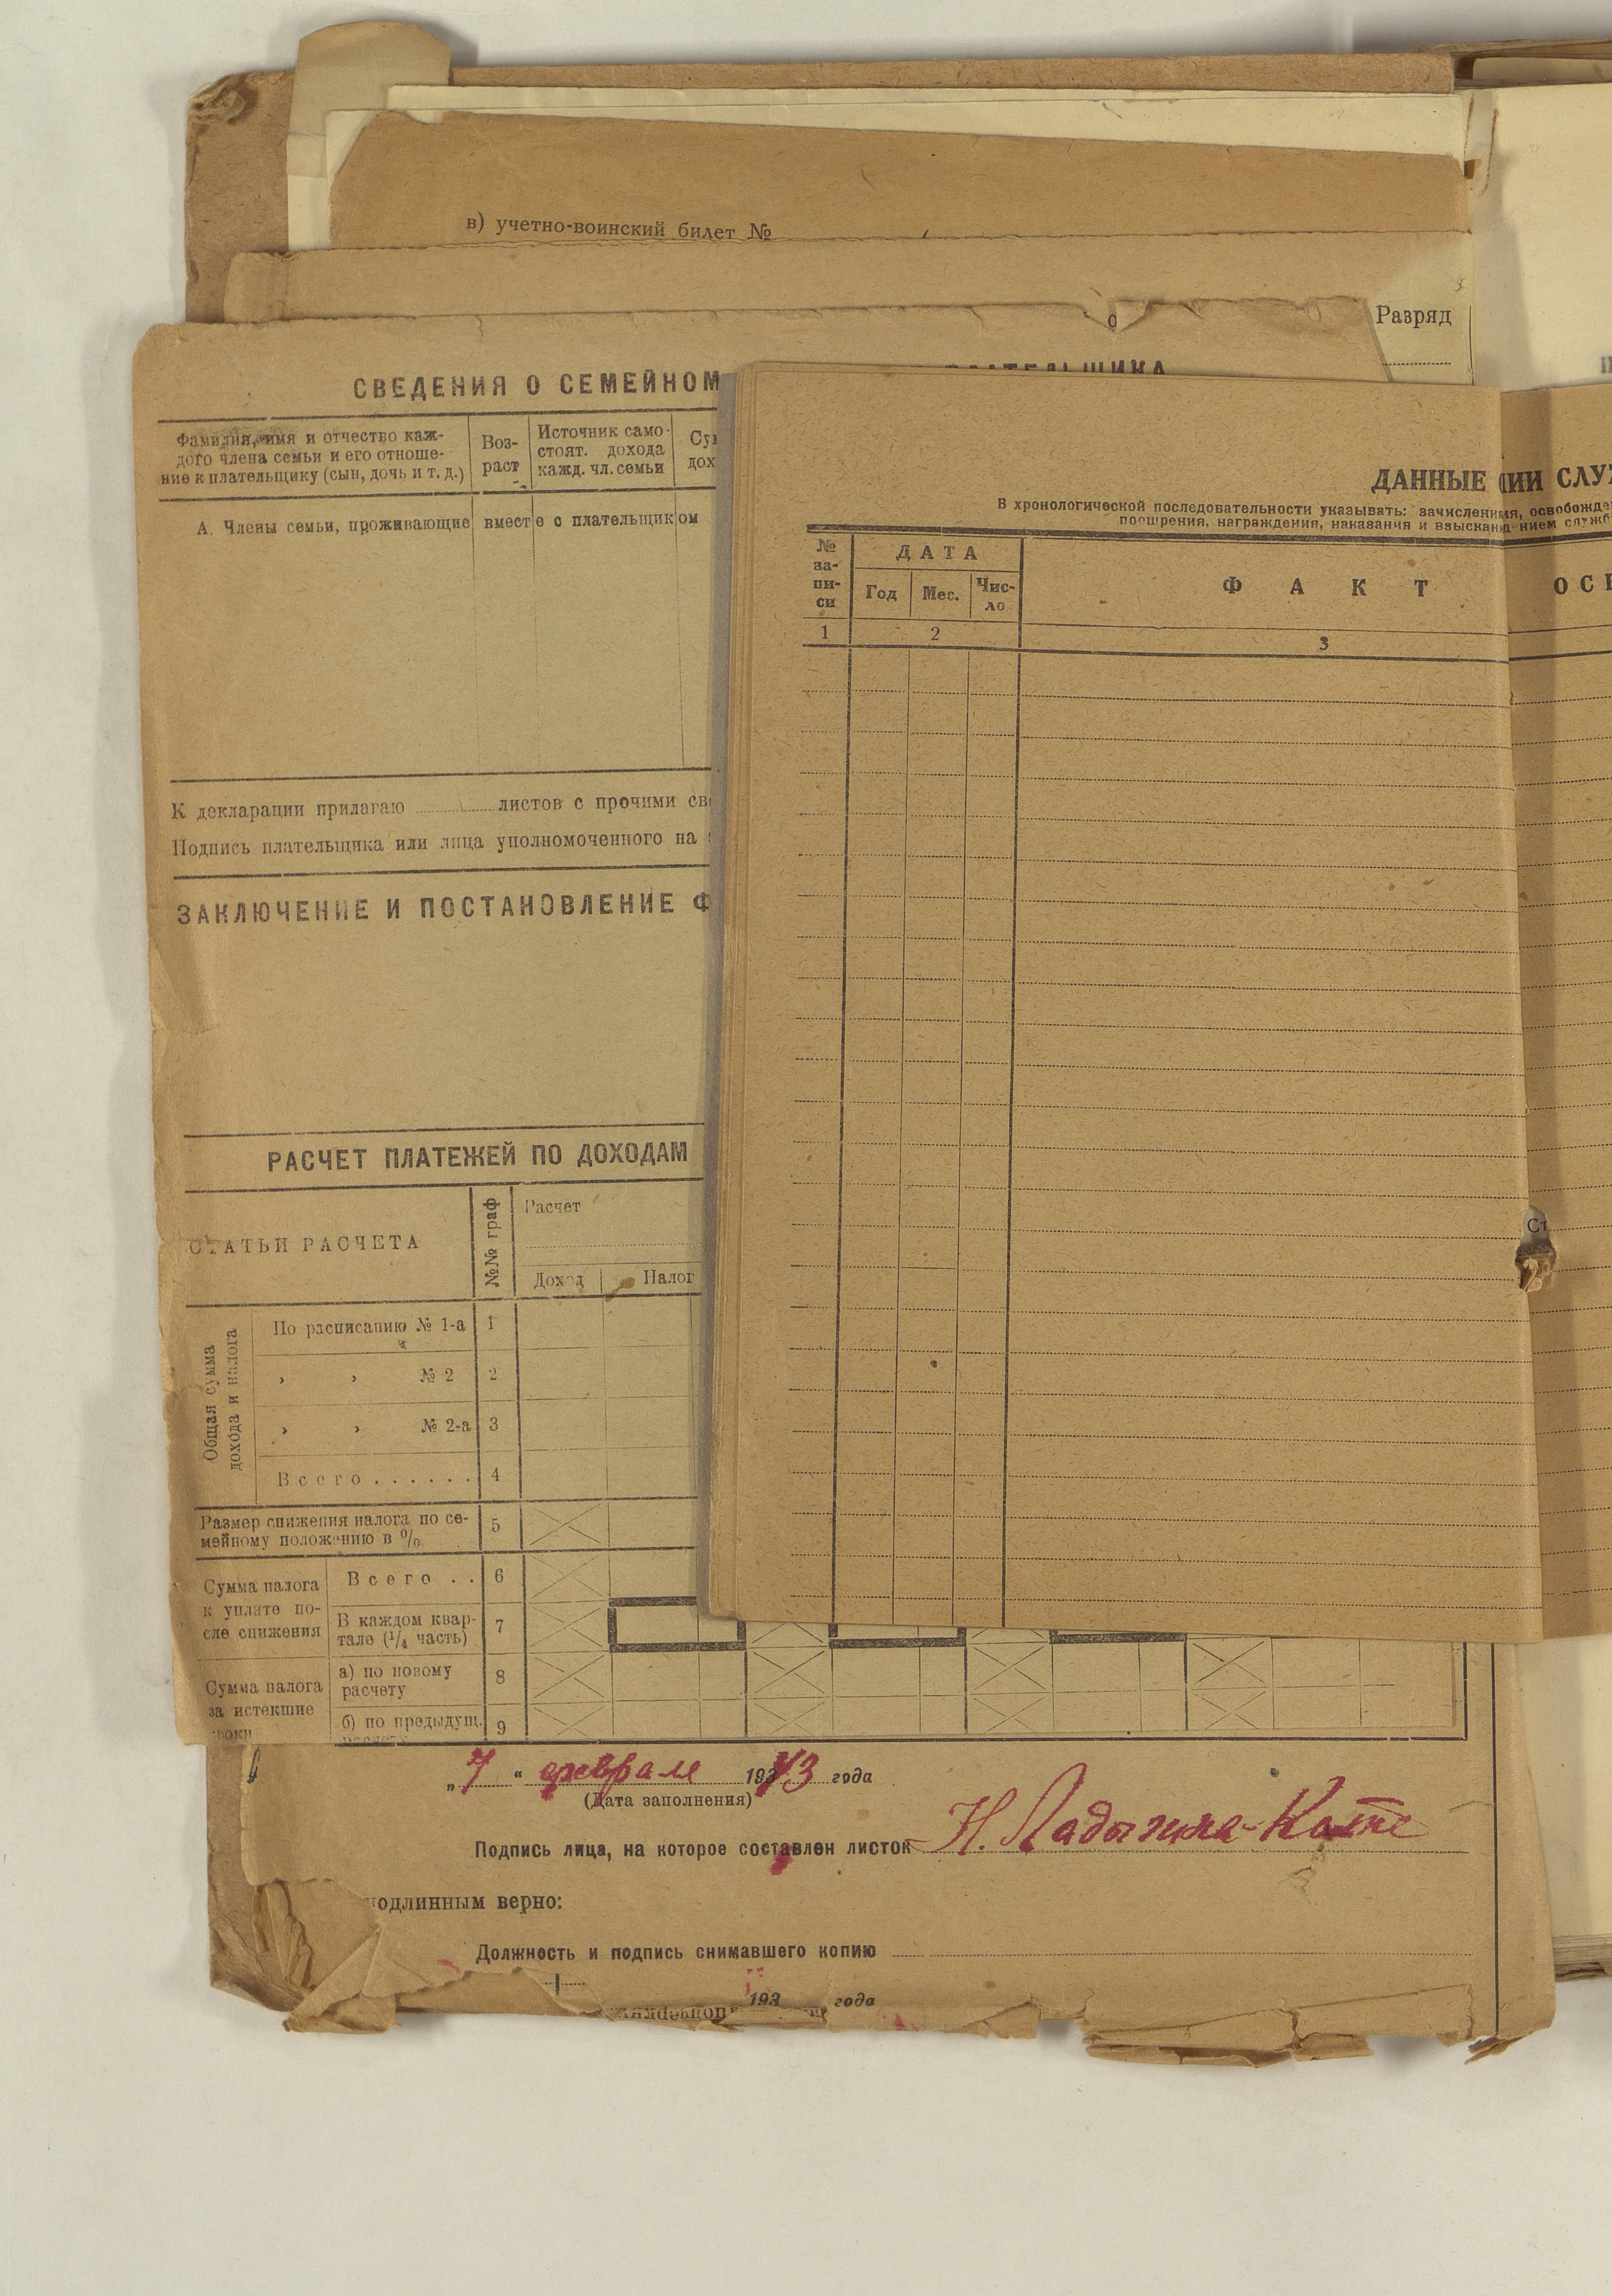 в) учетно-воинский билет №
Разряд
СВЕДЕНИЯ О СЕМЕЙНОМ
Фамилия, имя и отчество каж-
дого члена семьи и его отноше-
ние к плательщику (сын, дочь и т. д.)
Воз-
раст
Источник само-
стоят. дохода
кажд. чл. семьи
А. Члены семьи, проживающие вместе с плательщиком
К декларации прилагаю листов с прочими
Подпись плательщика или лица уполномоченного на
ЗАКЛЮЧЕНИЕ И ПОСТАНОВЛЕНИЕ Ф
РАСЧЕТ ПЛАТЕЖЕЙ ПО ДОХОДАМ
СТАТЬИ РАСЧЕТА
№№ граф
Расчет
Доход
Налог
Общая сумма
дохода и налога
По расписанию № 1-а 1
» » № 2 2
» » № 2-а 3
Всего . . . . . . 4
Размер снижения налога по се-
мейному положению в % 5
Сумма налога
к уплате по-
сле снижения
Всего . . 6
В каждом квар-
тале (¹/₄ часть) 7
Сумма налога
за истекшие
сроки
а) по новому
расчету 8
б) по предыдущ. 9
ДАННЫЕ
ИИ СЛУ
В хронологической последовательности указывать: зачисления
, освобожде
поощрения, награждения, наказания и взыскан
№
за-
пи-
си
ДАТА
Год
Мес.
Чис-
ло
ФАКТ
ОС
1 2 3
„7“ февраля 1943 года
(Дата заполнения)
Подпись лица, на которое составлен листок Н. Ладыгина-Котс
подлинным верно:
Должность и подпись снимавшего копию
193 года